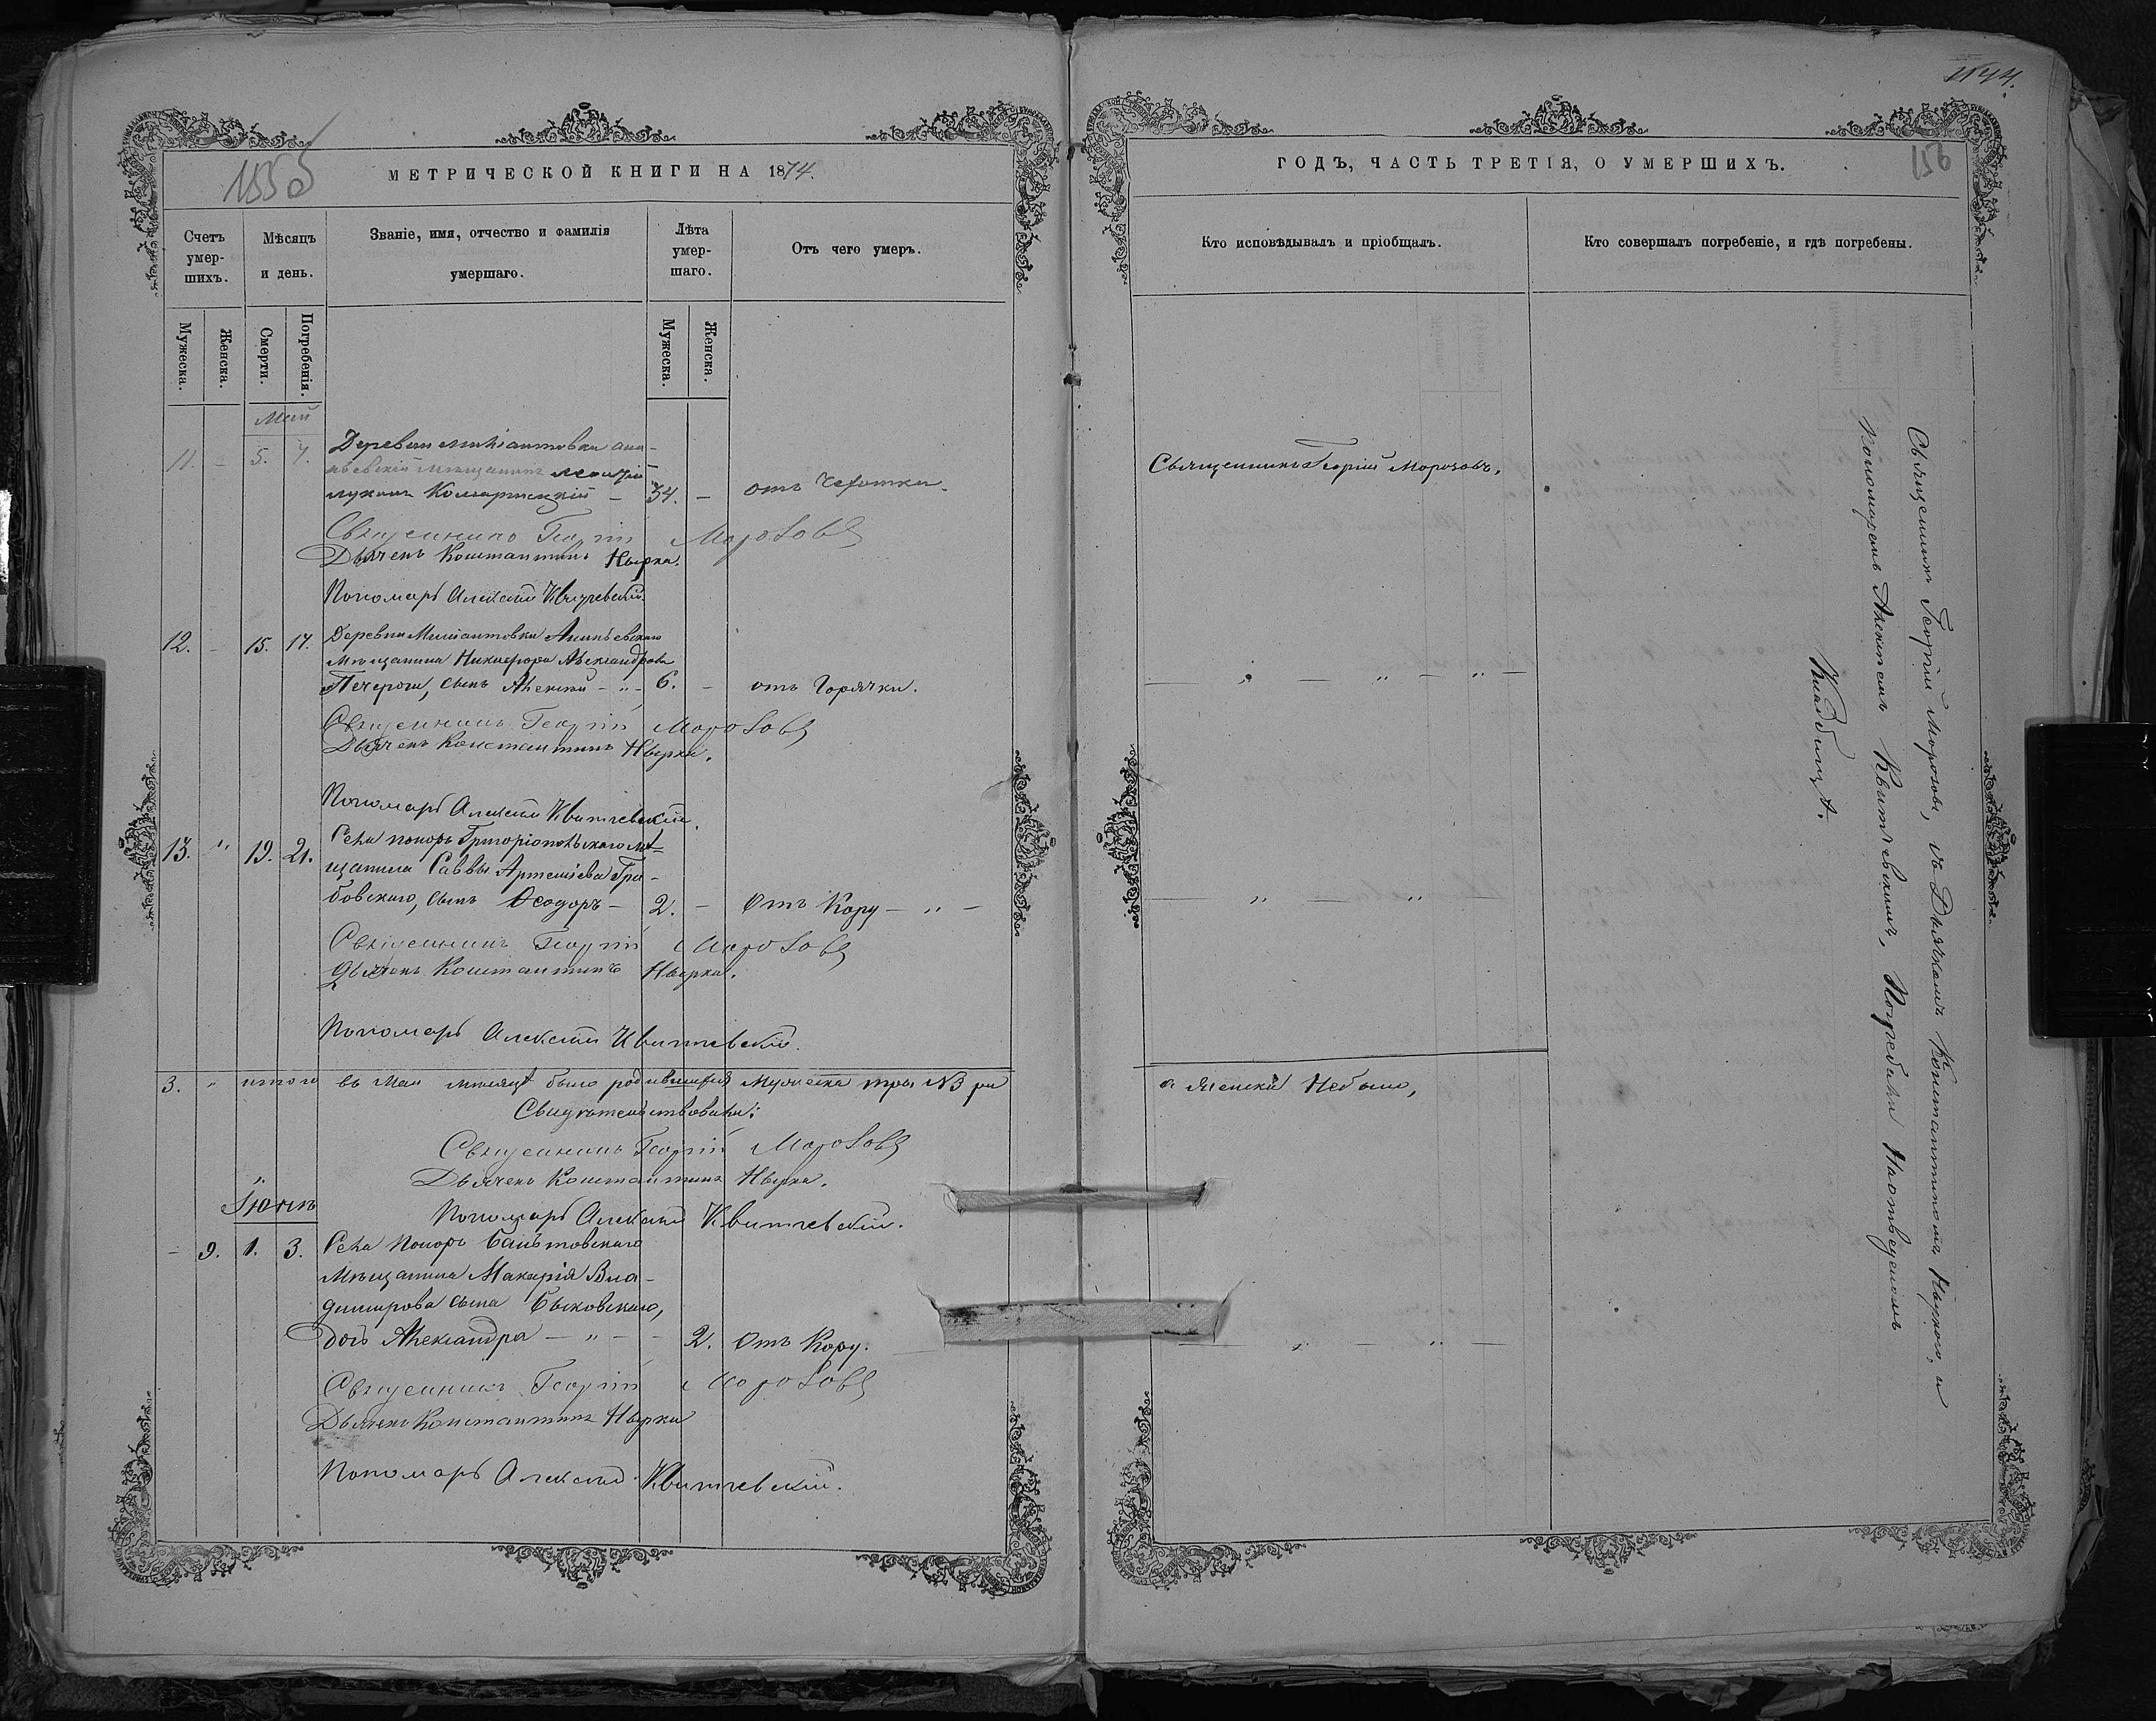 1555
МЕТРИЧЕСКОЙ КНИГИ НА 1874.
Счетъ умер-шихъ.
Мѣсяцъ и день.
Званіе, имя, отчество и фамилія умершаго.
Лѣта умер-шаго.
Отъ чего умеръ.
Мужеска.
Женска.
Смерти.
Погребенія.
Мужеска.
Женска.
Май
11. – 5. 7. Деревни Ана-
ньевскій мѣщанинъ
Комарницкій – 34. – отъ Чехотки.
Священникъ Георгій Морозовъ
Дьячекъ Константинъ Нырка.
Пономарь Алексѣй Квитчевскій
12. – 15. 17. Деревни Ананьевскаго
мѣщанина Никифора Александрова
сынъ Алексѣй – „ – 6. – отъ Горячки.
Священникъ Георгій Морозовъ
Дьячекъ Константинъ Нырка.
Пономарь Алексѣй Квитчевскій.
13. „ 19. 21. Села Григоріопольскаго мѣ-
щанина Саввы Артемієва Гра-
бовскаго, сынъ Ѳеодоръ – 2. – Отъ Кору – „ –
Священникъ Георгій Морозовъ
Дьячекъ Константинъ Нырка.
Пономарь Алексѣй Квитчевскій.
3. „ итого въ Маи мѣсяцѣ было родившихся Мужеска три №3 ри
Свидѣтельствовали:
Священникъ Георгій Морозовъ
Дьячекъ Константинъ Нырка.
Пономарь Алексѣй Квитчевскій.
Іюнь
– 9. 1. 3. Села
Мѣщанина Макарія Вла-
димирова сына Быковскаго,
дочь Александра – „ – – 2. Отъ Кору.
Священникъ Георгій Морозовъ
Дьячекъ Константинъ Нырка
Пономарь Алексѣй Квитчевскій.
156
ГОДЪ, ЧАСТЬ ТРЕТІЯ, О УМЕРШИХЪ.
Кто исповѣдывалъ и пріобщалъ.
Кто совершалъ погребеніе, и гдѣ погребены.
Священникъ Георгій Морозовъ.
– „ – „ – „ –
– „ – „ –
а женска Небыло,
– „ – „ –
Священникъ Георгій Морозовъ, съ Дьячкомъ Константиномъ Ныркою, и
Пономаремъ Алексѣемъ Квитчевскимъ, Погребали Наотведеномъ
Кладбищѣ.